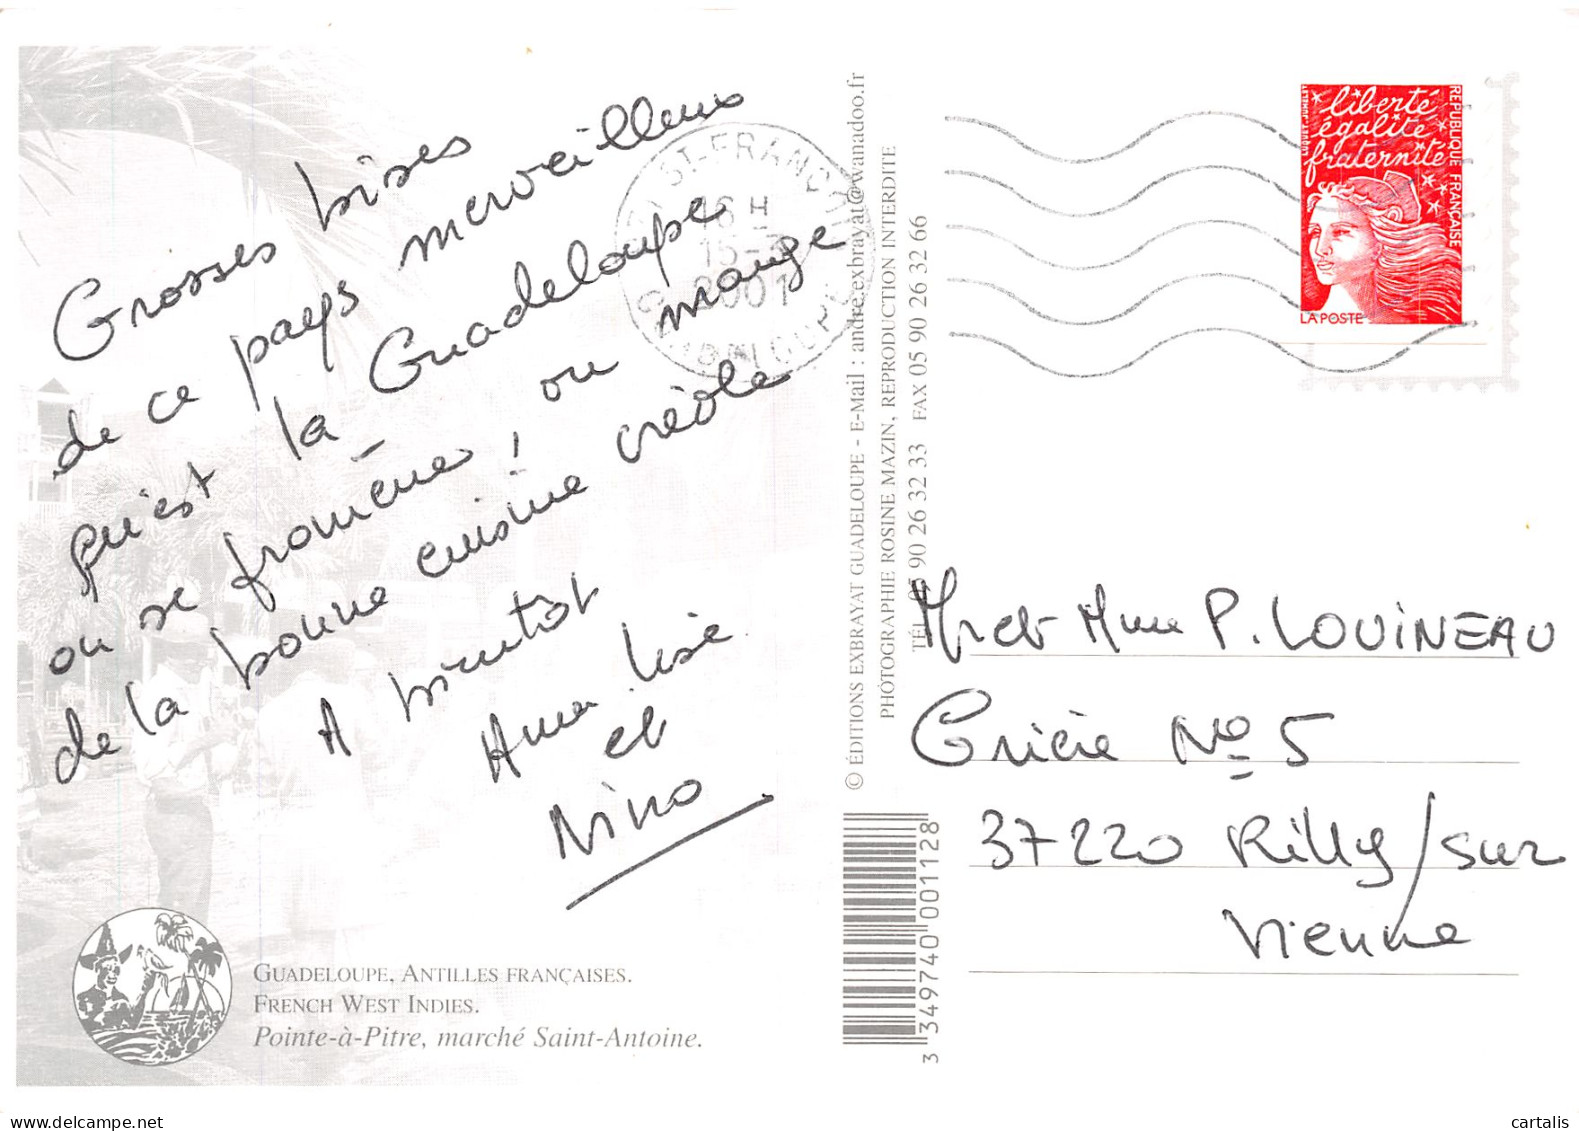 Grosses bises
de ce pays merveilleux
qu'est la Guadeloupe
on se promène ! on mange
de la bonne cuisine créole
A bientôt
Anna Lise
et
Nino
GUADELOUPE, ANTILLES FRANÇAISES.
FRENCH WEST INDIES.
Pointe-à-Pitre, marché Saint-Antoine.
ST-FRANÇOIS
16 H
15-
2001
GUADELOUPE
© ÉDITIONS EXBRAYAT GUADELOUPE - E-Mail : andre.exbrayat@wanadoo.fr
PHOTOGRAPHIE ROSINE MAZIN, REPRODUCTION INTERDITE
TÉL. 05 90 26 32 33 FAX 05 90 26 32 66
3 349740 001128
liberté
égalité
fraternité
RÉPUBLIQUE FRANÇAISE
LA POSTE
Mr et Mme P. LOUINEAU
Cricié No 5
37220 Rilly/sur
Vienne
cartalis